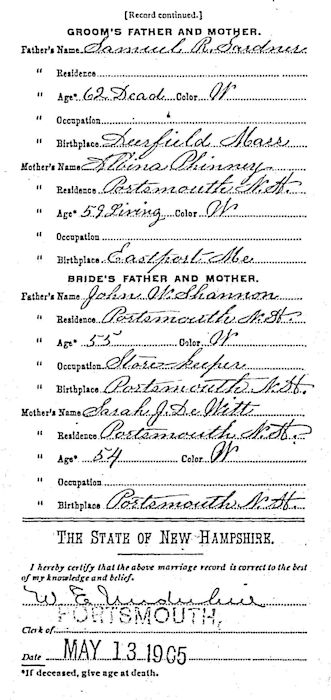 [Record continued.]
GROOM'S FATHER AND MOTHER.
Father's Name Samuel R. Gardner
" Residence
" Age* 62 Dead Color W
" Occupation
" Birthplace Deerfield Mass
Mother's Name Albina Phinney
" Residence Portsmouth N.H.
" Age* 59 Living Color W
" Occupation
" Birthplace Eastport Me
BRIDE'S FATHER AND MOTHER.
Father's Name John W. Shannon
" Residence Portsmouth N.H.
" Age* 55 Color W
" Occupation Store-keeper
" Birthplace Portsmouth N.H.
Mother's Name Sarah J. De Witt
" Residence Portsmouth N.H.
" Age* 54 Color W
" Occupation
" Birthplace Portsmouth N.H.
THE STATE OF NEW HAMPSHIRE.
I hereby certify that the above marriage record is correct to the best
of my knowledge and belief.
W. E. Underhill
PORTSMOUTH,
Clerk of
Date MAY 13 1905
*If deceased, give age at death.